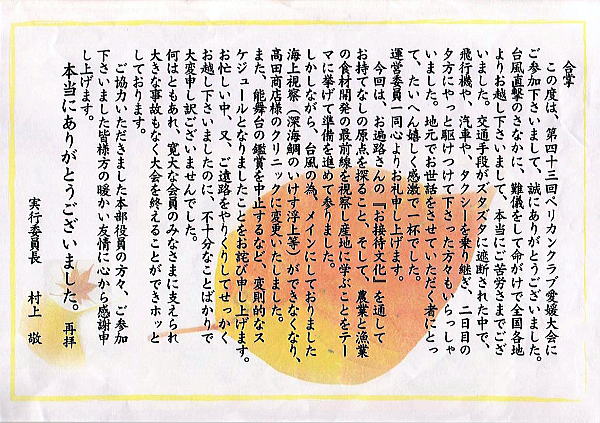 合掌
この度は、第四十三回ペリカンクラブ愛媛大会に
ご参加下さいまして、誠にありがとうございました。
台風直撃のさなかに、難儀をして命がけで全国各地
よりお越し下さいまして、本当にご苦労さまでござ
いました。交通手段がズタズタに遮断された中で、
飛行機や、汽車や、タクシーを乗り継ぎ、二日目の
夕方にやっと駆けつけて下さった方々もいらっしゃ
いました。地元でお世話をさせていただく者にとっ
て、たいへん嬉しく感激で一杯でした。
運営委員一同心よりお礼申し上げます。
今回は、お遍路さんの『お接待文化』を通して
お持てなしの原点を探ること、そして、農業と漁業
の食材開発の最前線を視察し産地に学ぶことをテー
マに挙げて準備を進めて参りました。
しかしながら、台風の為、メインにしておりました
海上視察（深海鯛のいけす浮上等）ができなくなり、
高田商店様のクリニックに変更いたしました。
また、能舞台の鑑賞を中止するなど、変則的なス
ケジュールとなりましたことをお詫び申し上げます。
お忙しい中、又、ご遠路をやりくりしてせっかく
お越し下さいましたのに、不十分なことばかりで
大変申し訳ございませんでした。
何はともあれ、寛大な会員のみなさまに支えられ
大きな事故もなく大会を終えることができホッと
しております。
ご協力いただきました本部役員の方々、ご参加
下さいました皆様方の暖かい友情に心から感謝申
し上げます。
本当にありがとうございました。 再拝
実行委員長 村上 敬